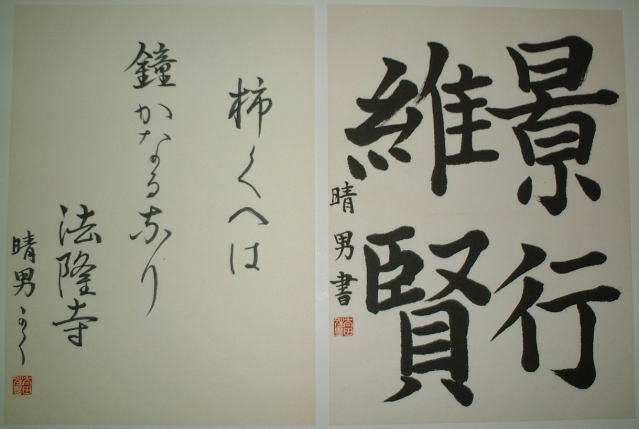 景行
維賢
晴男書
柿くへは
鐘かなるなり
法隆寺
晴男かく